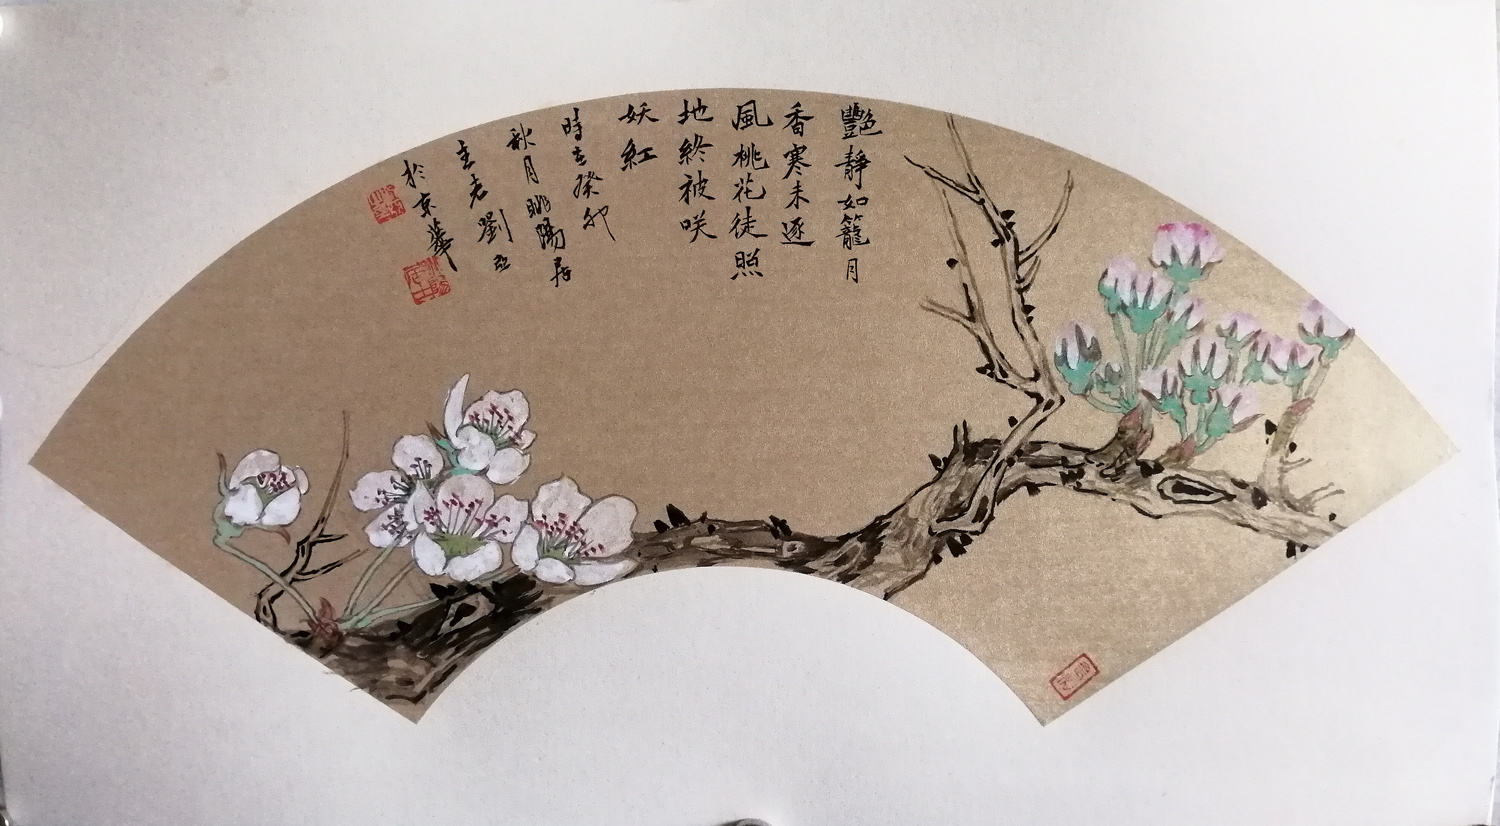 豔靜如籠月
香寒未逐
風桃花徒照
地終被咲
妖紅
時在癸卯
秋月眺陽居
主老劉
於京華